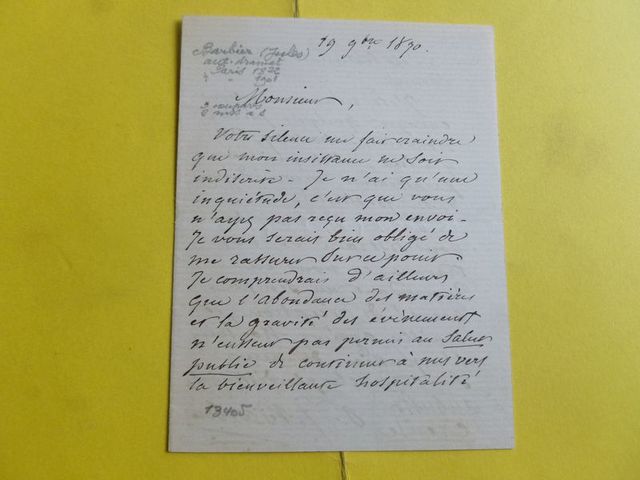 19 9bre 1870.
Barbier (Jules)
aut. dramat
Paris 1822
1901
Monsieur,
Votre silence me fait craindre
que mon insistance ne soit
indiscrète - Je n'ai qu'une
inquiétude, c'est que vous
n'ayez pas reçu mon envoi -
Je vous serais bien obligé de
me rassurer sur ce point
Je comprendrais d'ailleurs
que l'abondance des matières
et la gravité des événements
n'eussent pas permis au Salut
public de continuer à mes vers
la bienveillante hospitalité
13405